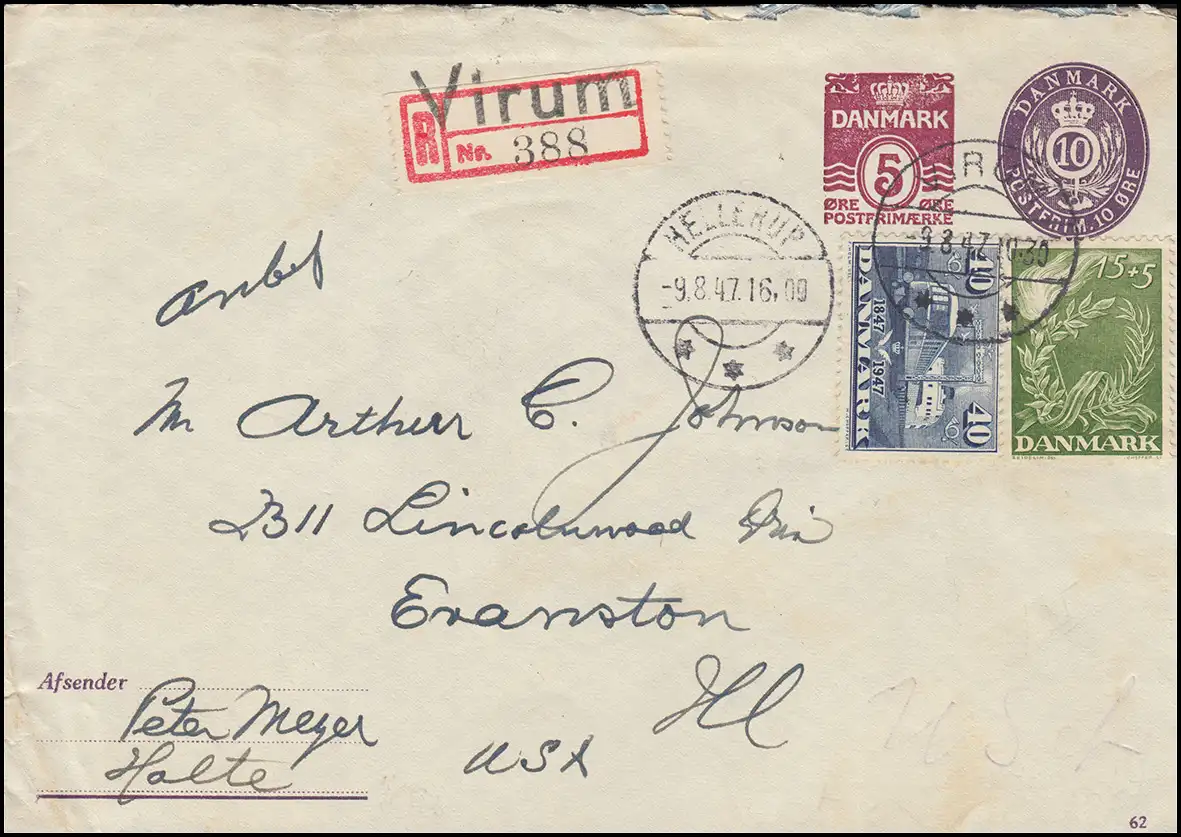 Virum
R Nr. 388
DANMARK
5
ØRE ØRE
POSTFRIMÆRKE
DANMARK
10
POSTFRIM. 10 ØRE
HELLERUP
-9.8.47.16,00
-9.8.47.10.30
40 40
1847 1947
DANMARK
15+5
DANMARK
anbef
M Arthur C. Johnson
2311 Lincolnwood
Evanston
Ill
USA
USA
Afsender
Peter Meyer
Holte
62